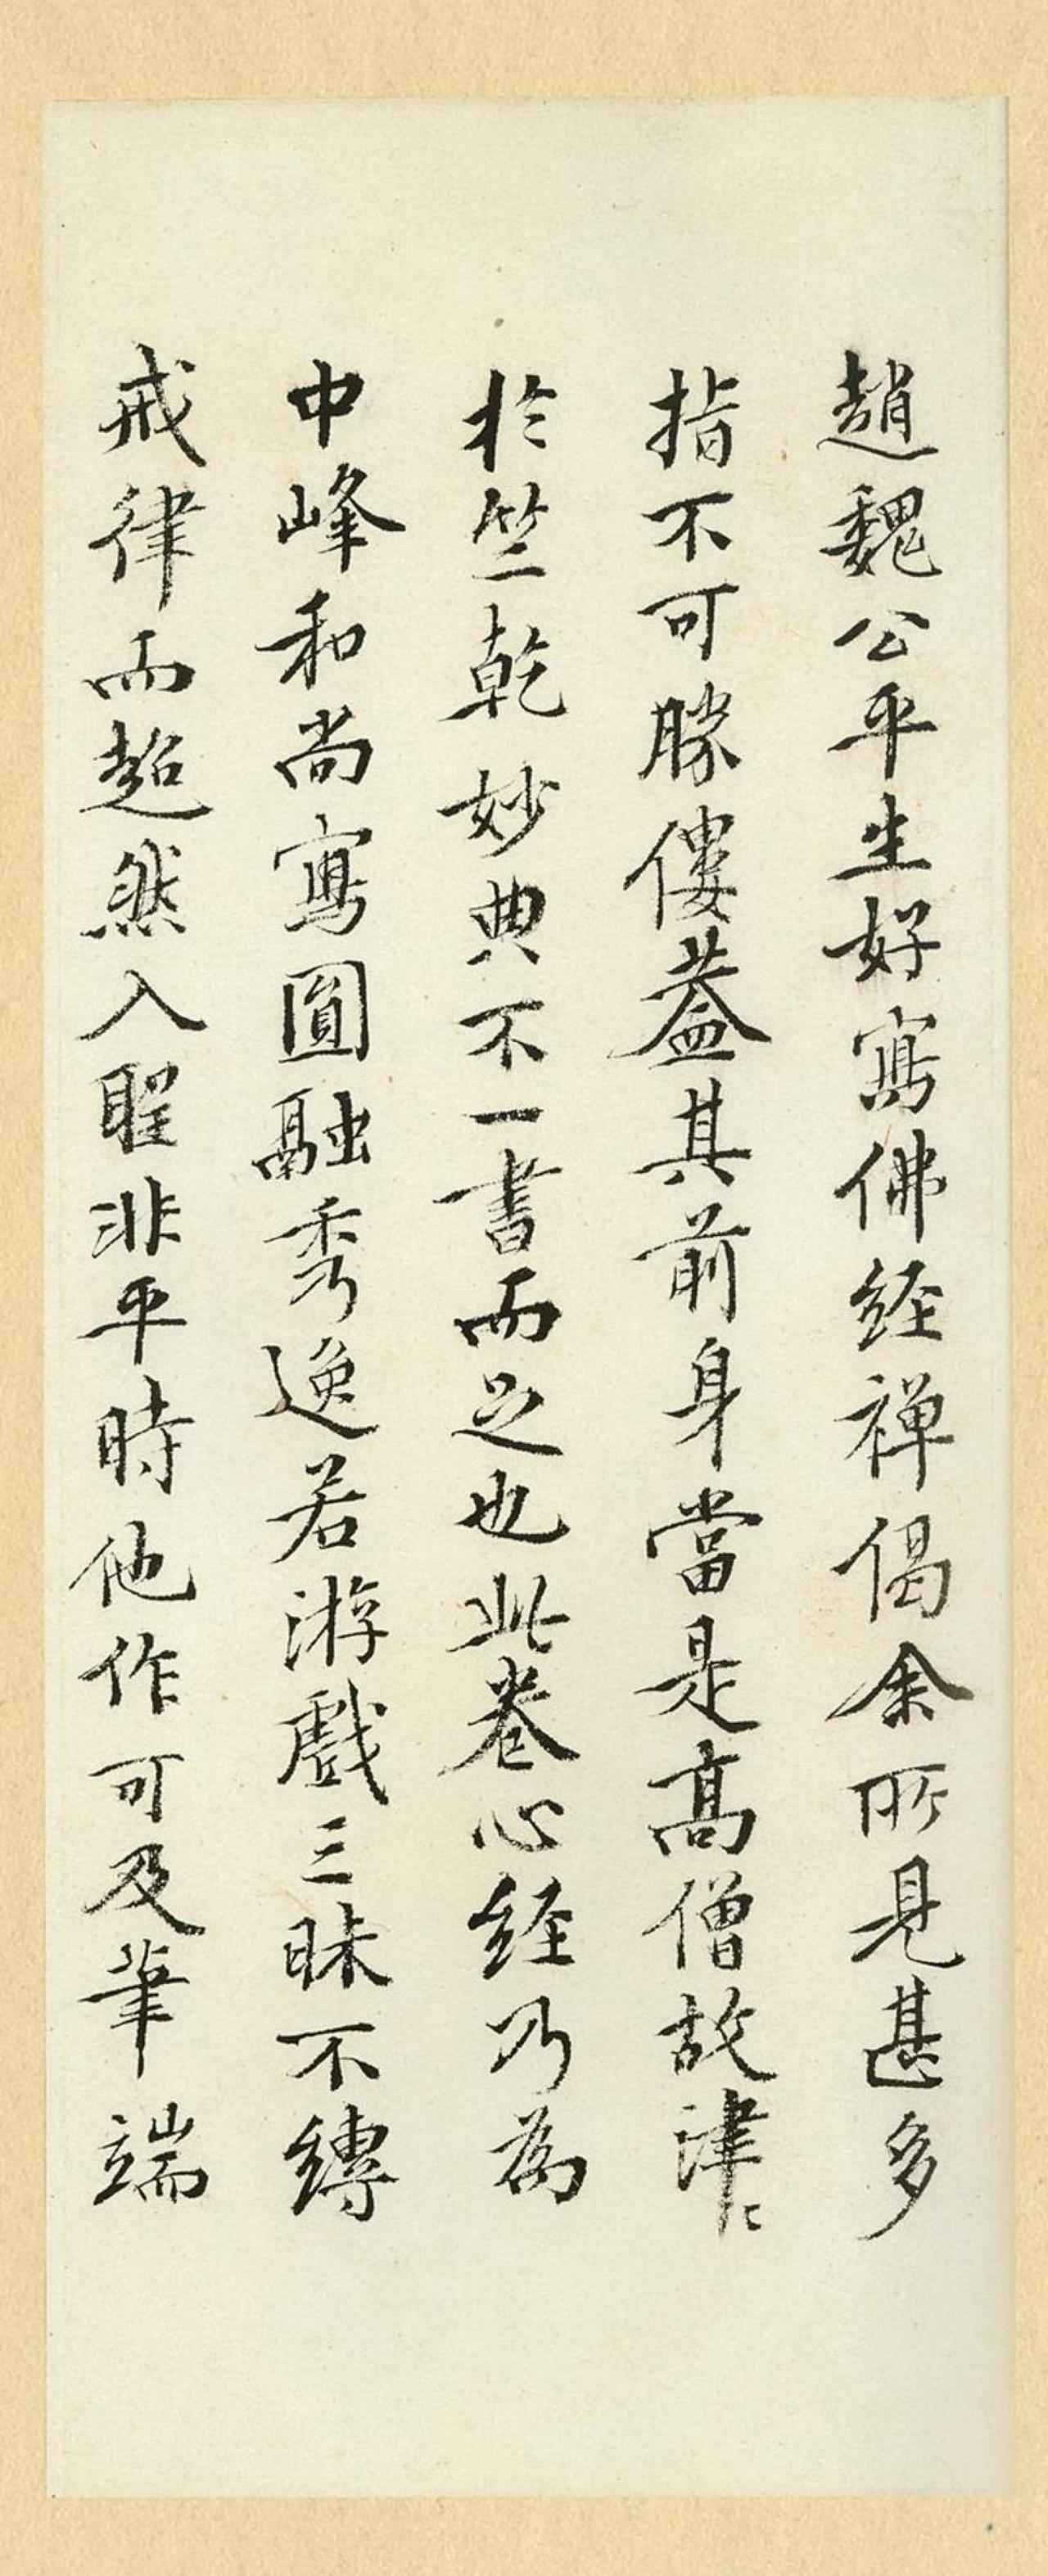 趙魏公平生好寫佛経禅偈余所見甚多
指不可勝僂蓋其前身當是高僧故津〻
於竺乾妙典不一書而足也此卷心経乃為
中峰和尚寫圓融秀逸若游戲三昧不縛
戒律而超然入聖非平時他作可及筆端